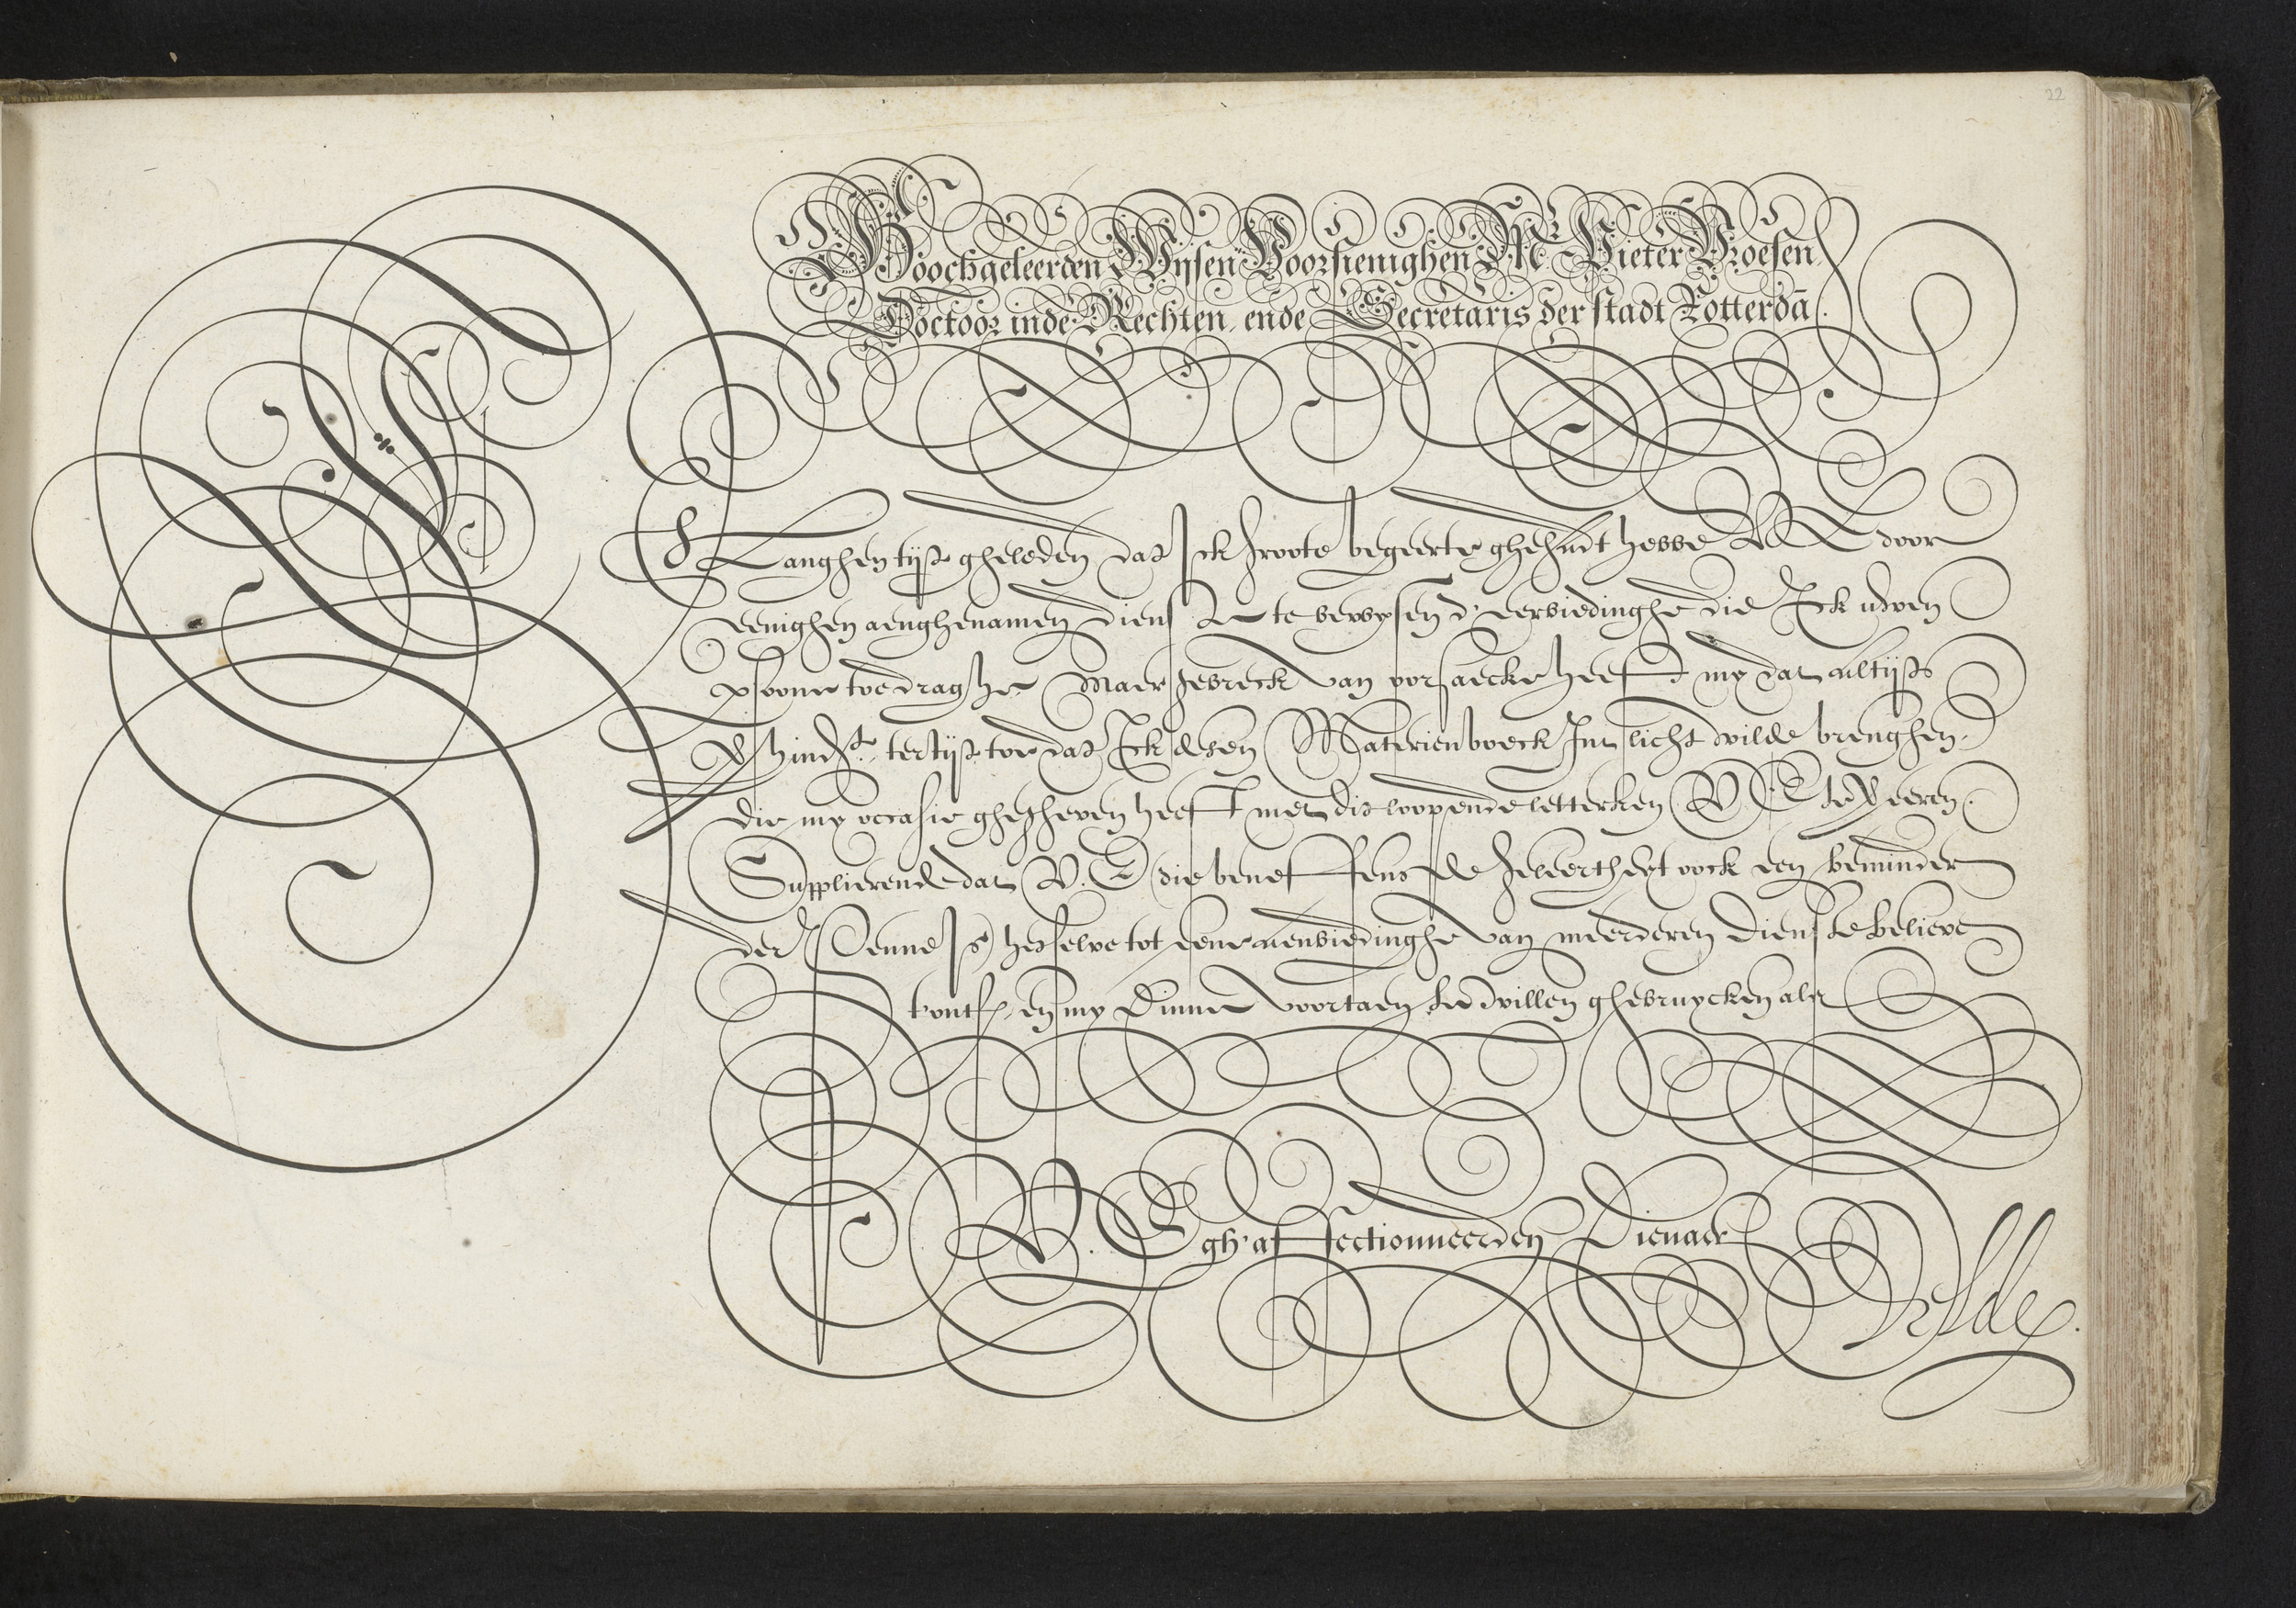 22
Hoochgeleerden Wijsen Voorsienighen Mr. Pieter Vroesen
Doctoor inde Rechten, ende Secretaris der stadt Rotterdā.
Langhen tijt gheleden dat Ick groote begeerte ghehadt hebbe V.E. door
eenighen aenghenamen dienst te bewysen d'eerbiedinghe die Ick uwen
psoone toedraghe Maer gebreck van oorsaecke heeft my dat altijts
tertijt toe dat Ick desen Materienboeck Int licht wilde brenghen,
die my occasie ghegheven heeft met dit loopende letterken V.E. te Veeren.
Supplierende dat V.E. die beneffens de geleertheyt oock een beminder
der Penne Is, hetselve tot eene aenbiedinghe van meerderen dienst believe
t'ontf. en my Dinne voortaen te willen ghebruycken als
V.E. gh'affectionneerden Dienaer
Velde.